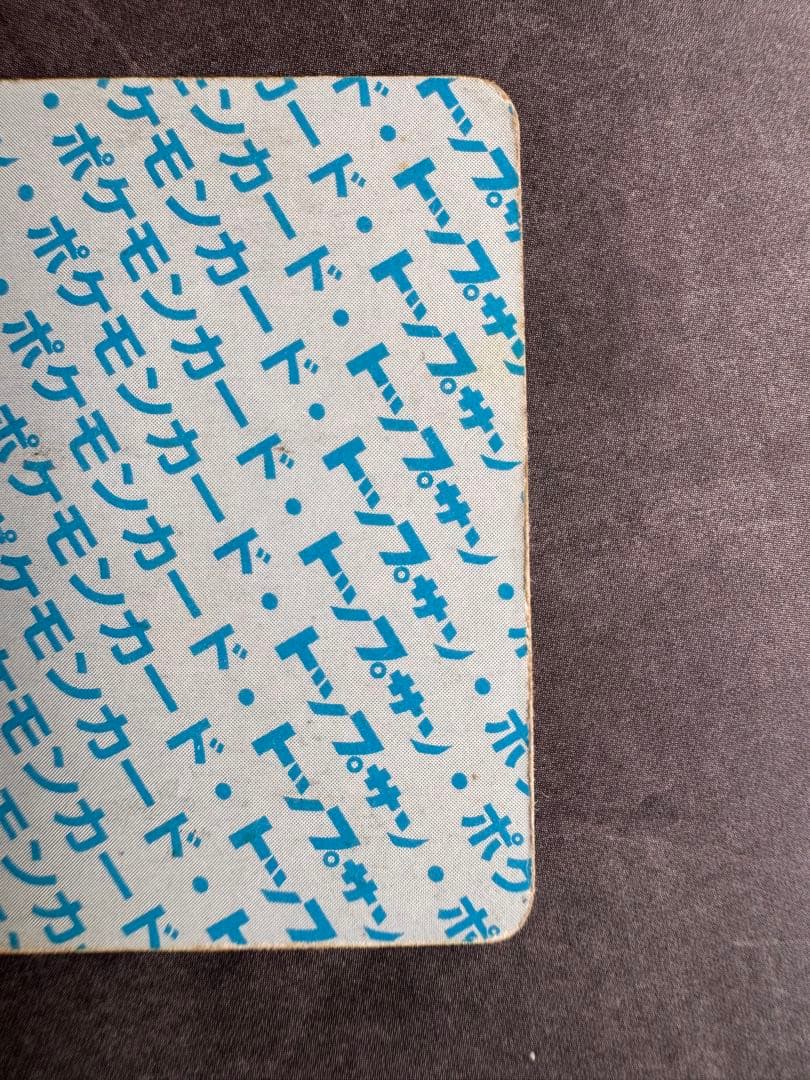 トップサ
ド・トップサン
ード・トップサン
ンカード・トップサン・
ケモンカード・トップサン・ポ
・ポケモンカード・トップサン・ポケ
・ポケモンカード・トップサン・ポ
・ポケモンカード・トップサン
ポケモンカード・トップ
ポケモンカード・ト
ケモンカード
モンカ